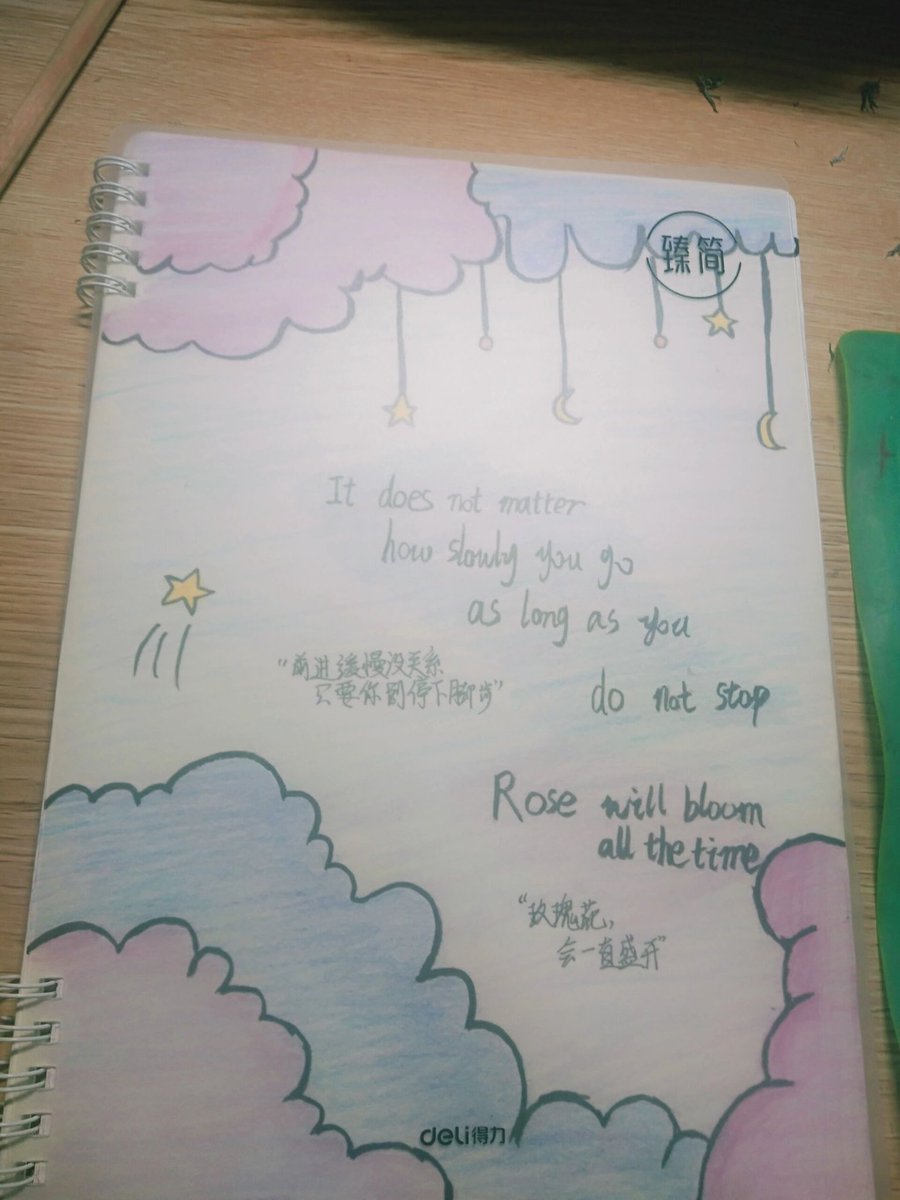 臻简
It does not matter
how slowly you go
as long as you
do not stop
"前进缓慢没关系
只要你别停下脚步"
Rose will bloom
all the time
"玫瑰花,
会一直盛开"
deli得力